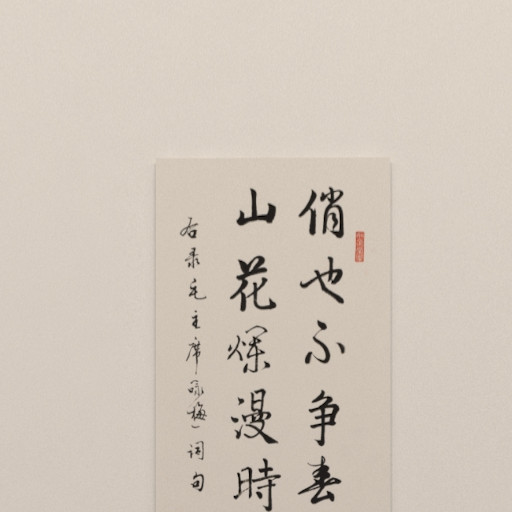 俏也不争春
山花烂漫時
右录毛主席咏梅词句